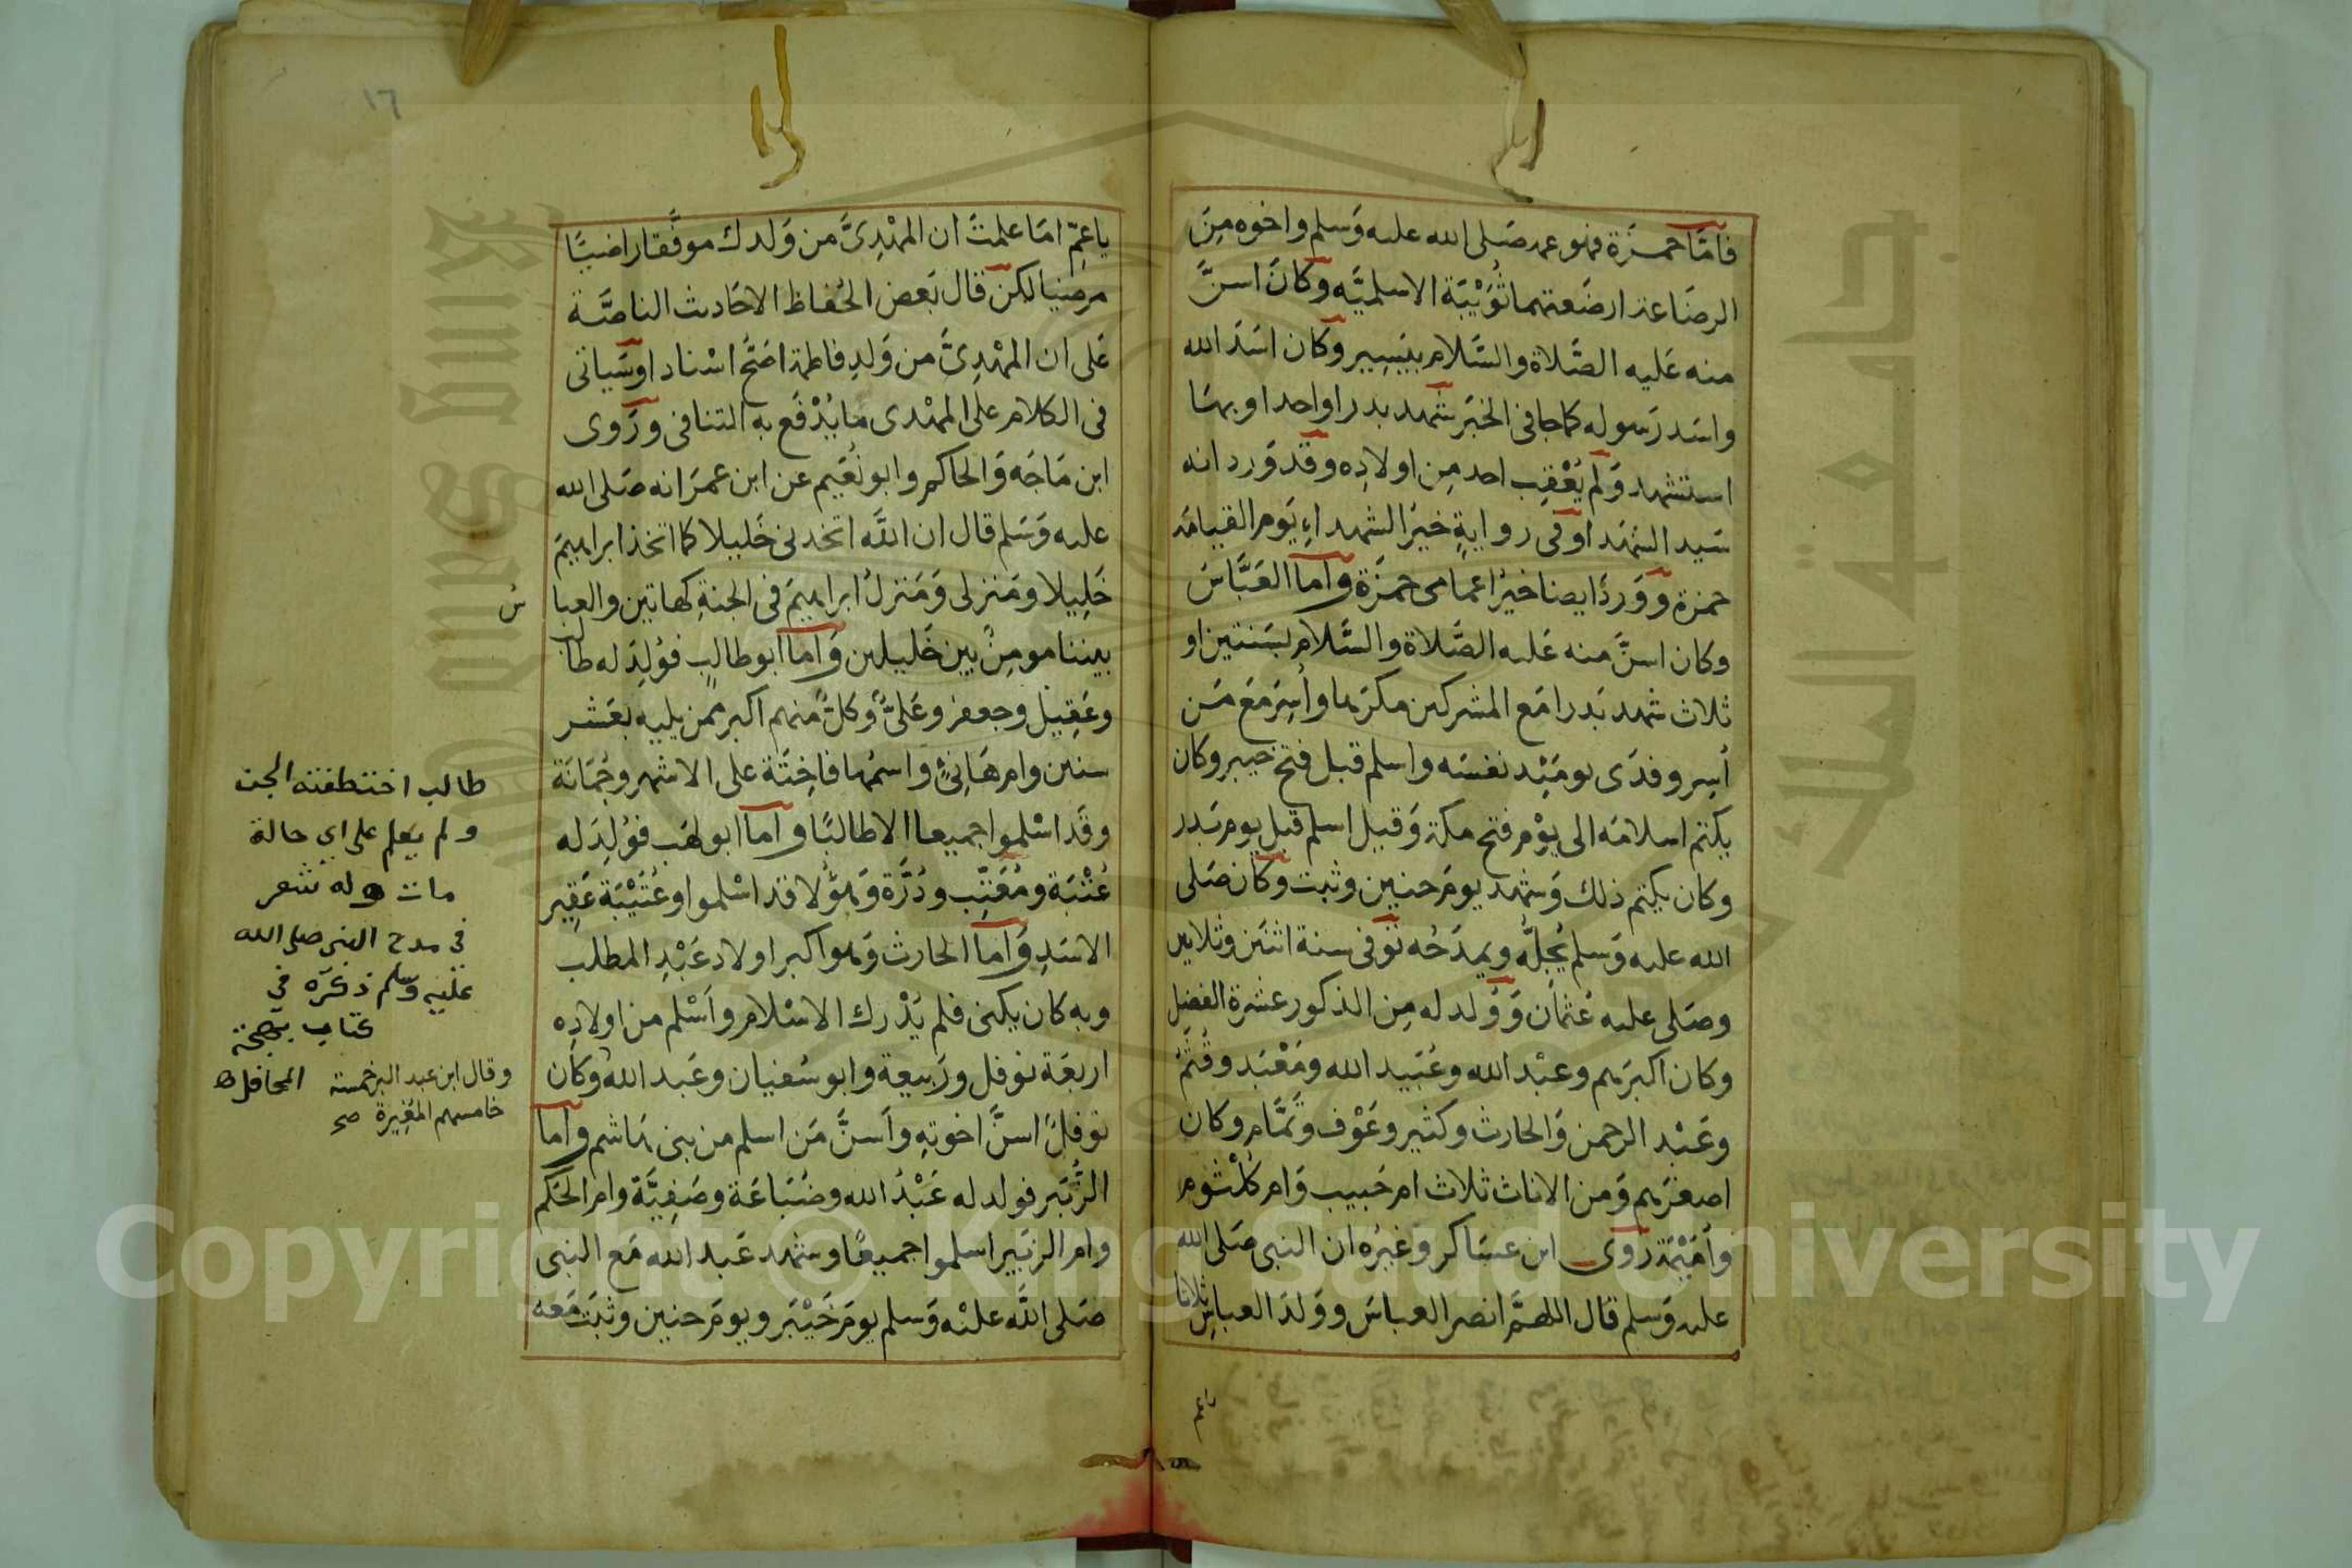 فامَّا حمزة فهو عمه صَلى الله عليه وَسلم واخوه مِنَ
الرضَاعة ارضَعتهما ثُوَيْبَة الاسلميَّه وكانَ اسنَّ
منه عَليه الصَّلاة والسَّلام بيَسِير وكان اسَدَ الله
واسَد رَسوله كما جا في الخبَر شهد بدرا واحدا وبهَا
استشهد وَلم يُعْقِب احد مِن اولادِه وقد وَرد انه
سَيد الشهَدا وفى روايةٍ خيرَ الشهداءِ يَوم القيامَة
حمزة ووَردَ ايضا خيرُ اعمامى حمزَة واما العَبَّاسَ
وكان اسنَّ منه عَليه الصَّلاة والسَّلام بسَنتين او
ثلاث شهد بَدرا مَع المشركين مكرَها وأُسِرَ مَعَ مَن
أسِر وفدَى يومَئِد نفسَه واسلم قبل فتح خيبر وكان
يكتم اسلامَه الى يوْم فتح مكة وَقيل اسلم قبل يوم بَدر
وكان يكتم ذلك وَشهد يومَ حنين وثبت وكان صَلى
الله عليه وَسلم يُجِلُّه ويمدَحُه توفى سنة اثنَين وثلاثين
وصَلى عليه عُثمان وَوُلد له مِن الذكور عشرة الفضِل
وكان اكبرَهم وعبْد الله وعُبَيد الله ومَعْبَد وقُثَمُ
وعَبْد الرحمن وَالحارث وكثير وعَوْف وَتَمَّام وكان
اصغرَهم وَمن الاناث ثلاث ام حَبيب وَام كلْثوم
وأمَيْمَة رَوى ابن عسَاكر وَغيرُه ان النبى صَلى الله
عليه وَسلم قال اللهمَّ انصر العباسَ ووَلدَ العباسِ ثلاثا
١٦
يا عمِّ امَا علمتَ ان المهْدِىَّ من وَلدك موفَّقا راضيًا
مرضيا لكن قال بَعض الحُفاظ الاحَاديث الناصَّة
عَلى ان المهْدِىَّ من وَلدِ فاطمة اصَحُّ اسْنادا وسَياتى
فى الكلام على المهْدى ما يُدْفَع به التنافى ورَوى
ابن مَاجَه وَالحاكم وابونُعَيم عن ابن عمَرَ انه صَلى الله
عليه وَسَلم قال ان اللَّه اتخدنى خَليلا كما اتخذ ابراهيمَ
خَلِيلا ومَنزلى وَمَنزلُ ابراهيمَ فى الجنةِ كهاتين والعبا
س
بيننا مومِنٌ بين خَليلين وَاما ابوطالبٍ فوُلِدَ له طالب
وعَقِيل وجعفر وعَلىٌّ وَكلٌّ منهم اكبر ممن يليه بعَشر
سنين وام هَانِئٍ واسمُها فاخِتَة على الاشهر وجُمَانَة
وقد اسْلموا جميعا الا طالبًا واما ابولهَب فوُلِدَ له
عُتْبَة ومُعَتِّب ودُرَّة وَهؤُلا قد اسْلموا وعُتَيْبَة عَقِير
الاسَدِ وَاما الحارث وَهو اكبر اولاد عَبْدِ المطلب
وبه كان يكنى فلم يُدْرك الاسْلام واَسْلم من اولادِه
اربعَة نوفل ورَبيعة وابوسُفيان وعَبد الله وَكان
نوفلٌ اسنَّ اخوتهِ وأسنَّ مَن اسلم من بنى هَاشم واما
الزُّبَير فولد له عَبْدُ الله وضُبَاعَة وصَفِيَّة وام الحَكم
وام الزبَير اسلموا جميعًا وشهد عَبد الله مَع النبى
صَلى اللَّه عليْه وَسلم يومَ خَيْبَر ويومَ حنين وثبَت مَعه
طالب اختطفته الجن
ولم يعلم على اى حالة
مات وله شعر
فى مدح النبى صلى الله
عليه وسلم ذكره فى
كتاب بهجة
المحافل
وقال ابن عبد البر خمسة
خامسهم المغيرة صح